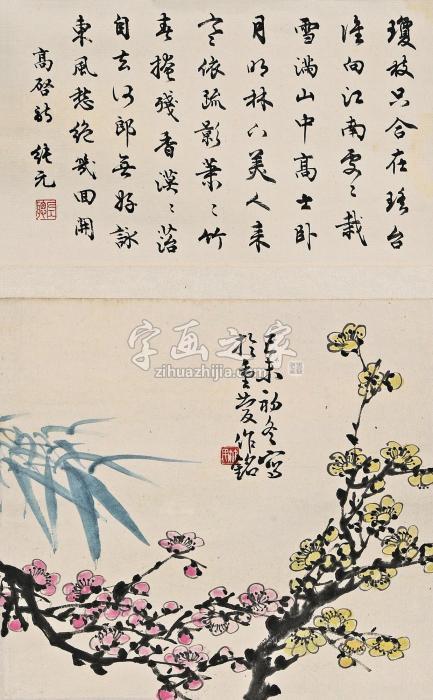 瓊枝只合在瑤台
誰向江南處〻栽
雪滿山中高士卧
月明林下美人来
寒依疏影蕭〻竹
春掩殘香漠〻苔
自去何郎無好詠
東風愁絕幾回開
高啓詩 純元
己未初冬寫
於重慶作銘
字画之家
zihuazhijia.com